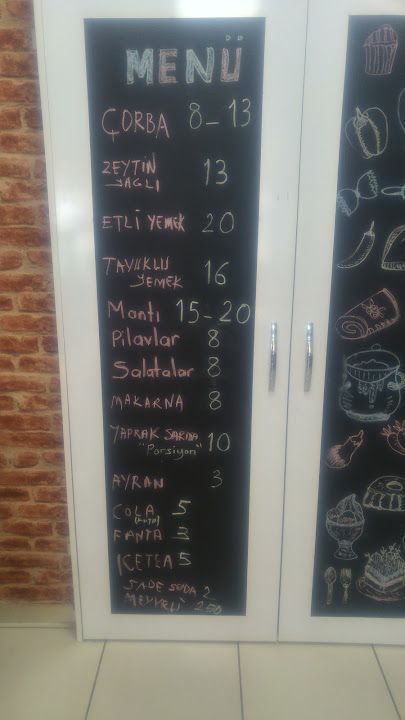 MENÜ
ÇORBA 8-13
ZEYTİN
YAĞLI 13
ETLİ YEMEK 20
TAVUKLU
YEMEK 16
Mantı 15-20
Pilavlar 8
Salatalar 8
MAKARNA 8
YAPRAK SARMA 10
"Porsiyon"
AYRAN 3
COLA 5
(KUTU)
FANTA 3
ICETEA 5
SADE SODA 2
MEYVELİ 250